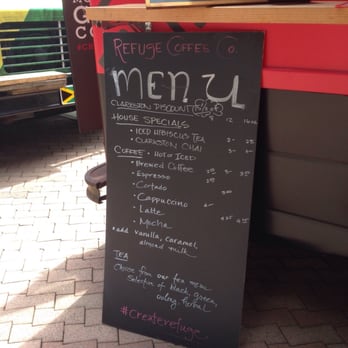 REFUGE COFFEE CO.
MENU
CLARKSTON DISCOUNT
12 16 oz
HOUSE SPECIALS
• ICED HIBISCUS TEA
• CLARKSTON CHAI
COFFEE • Hot or Iced
• Brewed Coffee
• Espresso
• Cortado
• Cappuccino
• Latte
• Mocha
• add vanilla, caramel,
almond milk
TEA
Choose from our tea menu
Selection of black, green,
oolong, herbal
#createrefuge